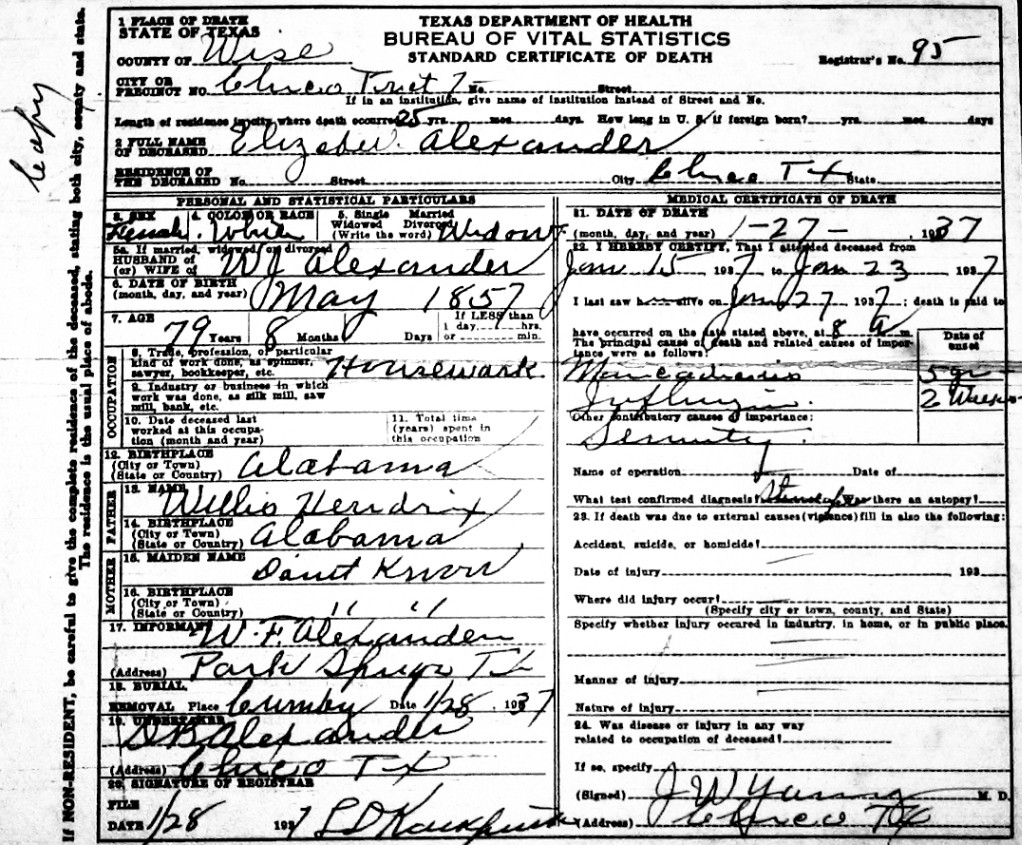 TEXAS DEPARTMENT OF HEALTH
BUREAU OF VITAL STATISTICS
STANDARD CERTIFICATE OF DEATH
Registrar's No. 95
1 PLACE OF DEATH
STATE OF TEXAS
COUNTY OF Wise
CITY OR PRECINCT NO. No. Street
If in an institution, give name of institution instead of Street and No.
Length of residence in city where death occurred 25 yrs. mos. days. How long in U. S. if foreign born? yrs. mos. days
2 FULL NAME OF DECEASED Alexander
RESIDENCE OF THE DECEASED No. Street City Chico Tx State
PERSONAL AND STATISTICAL PARTICULARS
3. SEX Female
4. COLOR OR RACE White
5. Single Married Widowed Divorced (Write the word) Widow
5a. If married, widowed or divorced
HUSBAND of (or) WIFE of W J Alexander
6. DATE OF BIRTH (month, day, and year) May 1857
7. AGE 79 Years 8 Months Days If LESS than 1 day, hrs. or min.
OCCUPATION
8. Trade, profession, or particular kind of work done, as spinner, sawyer, bookkeeper, etc. Housewark
9. Industry or business in which work was done, as silk mill, saw mill, bank, etc.
10. Date deceased last worked at this occupation (month and year)
11. Total time (years) spent in this occupation
12. BIRTHPLACE (City or Town) (State or Country) Alabama
FATHER
13. NAME Willis Hendrix
14. BIRTHPLACE (City or Town) (State or Country) Alabama
MOTHER
15. MAIDEN NAME
16. BIRTHPLACE (City or Town) (State or Country) " "
17. INFORMANT W. F. Alexander
(Address) Park Tx
18. BURIAL
REMOVAL Place Cumby Date 1/28 . 1937
19. UNDERTAKER
D B Alexander
(Address) Chico Tx
20. SIGNATURE OF REGISTRAR
FILE DATE 1/28 1937 L D
MEDICAL CERTIFICATE OF DEATH
21. DATE OF DEATH
(month, day, and year) 1-27- , 1937
22. I HEREBY CERTIFY, That I attended deceased from
Jan 15 1937 to Jan 23 1937
I last saw alive on Jan 27 1937; death is said to
have occurred on the date stated above, at 8 A m.
The principal cause of death and related causes of importance were as follows:
Date of onset
5 yr
2 Weeks
Other contributory causes of importance:
Name of operation Date of
What test confirmed diagnosis? Was there an autopsy?
23. If death was due to external causes (violence) fill in also the following:
Accident, suicide, or homicide?
Date of injury 193
Where did injury occur?
(Specify city or town, county, and State)
Specify whether injury occured in industry, in home, or in public place.
Manner of injury
Nature of injury
24. Was disease or injury in any way related to occupation of deceased?
If so, specify
(Signed) J W Young M. D.
(Address) Chico Tx
If NON-RESIDENT, be careful to give the complete residence of the deceased, stating both city, county and state.
The residence is the usual place of abode.
Copy